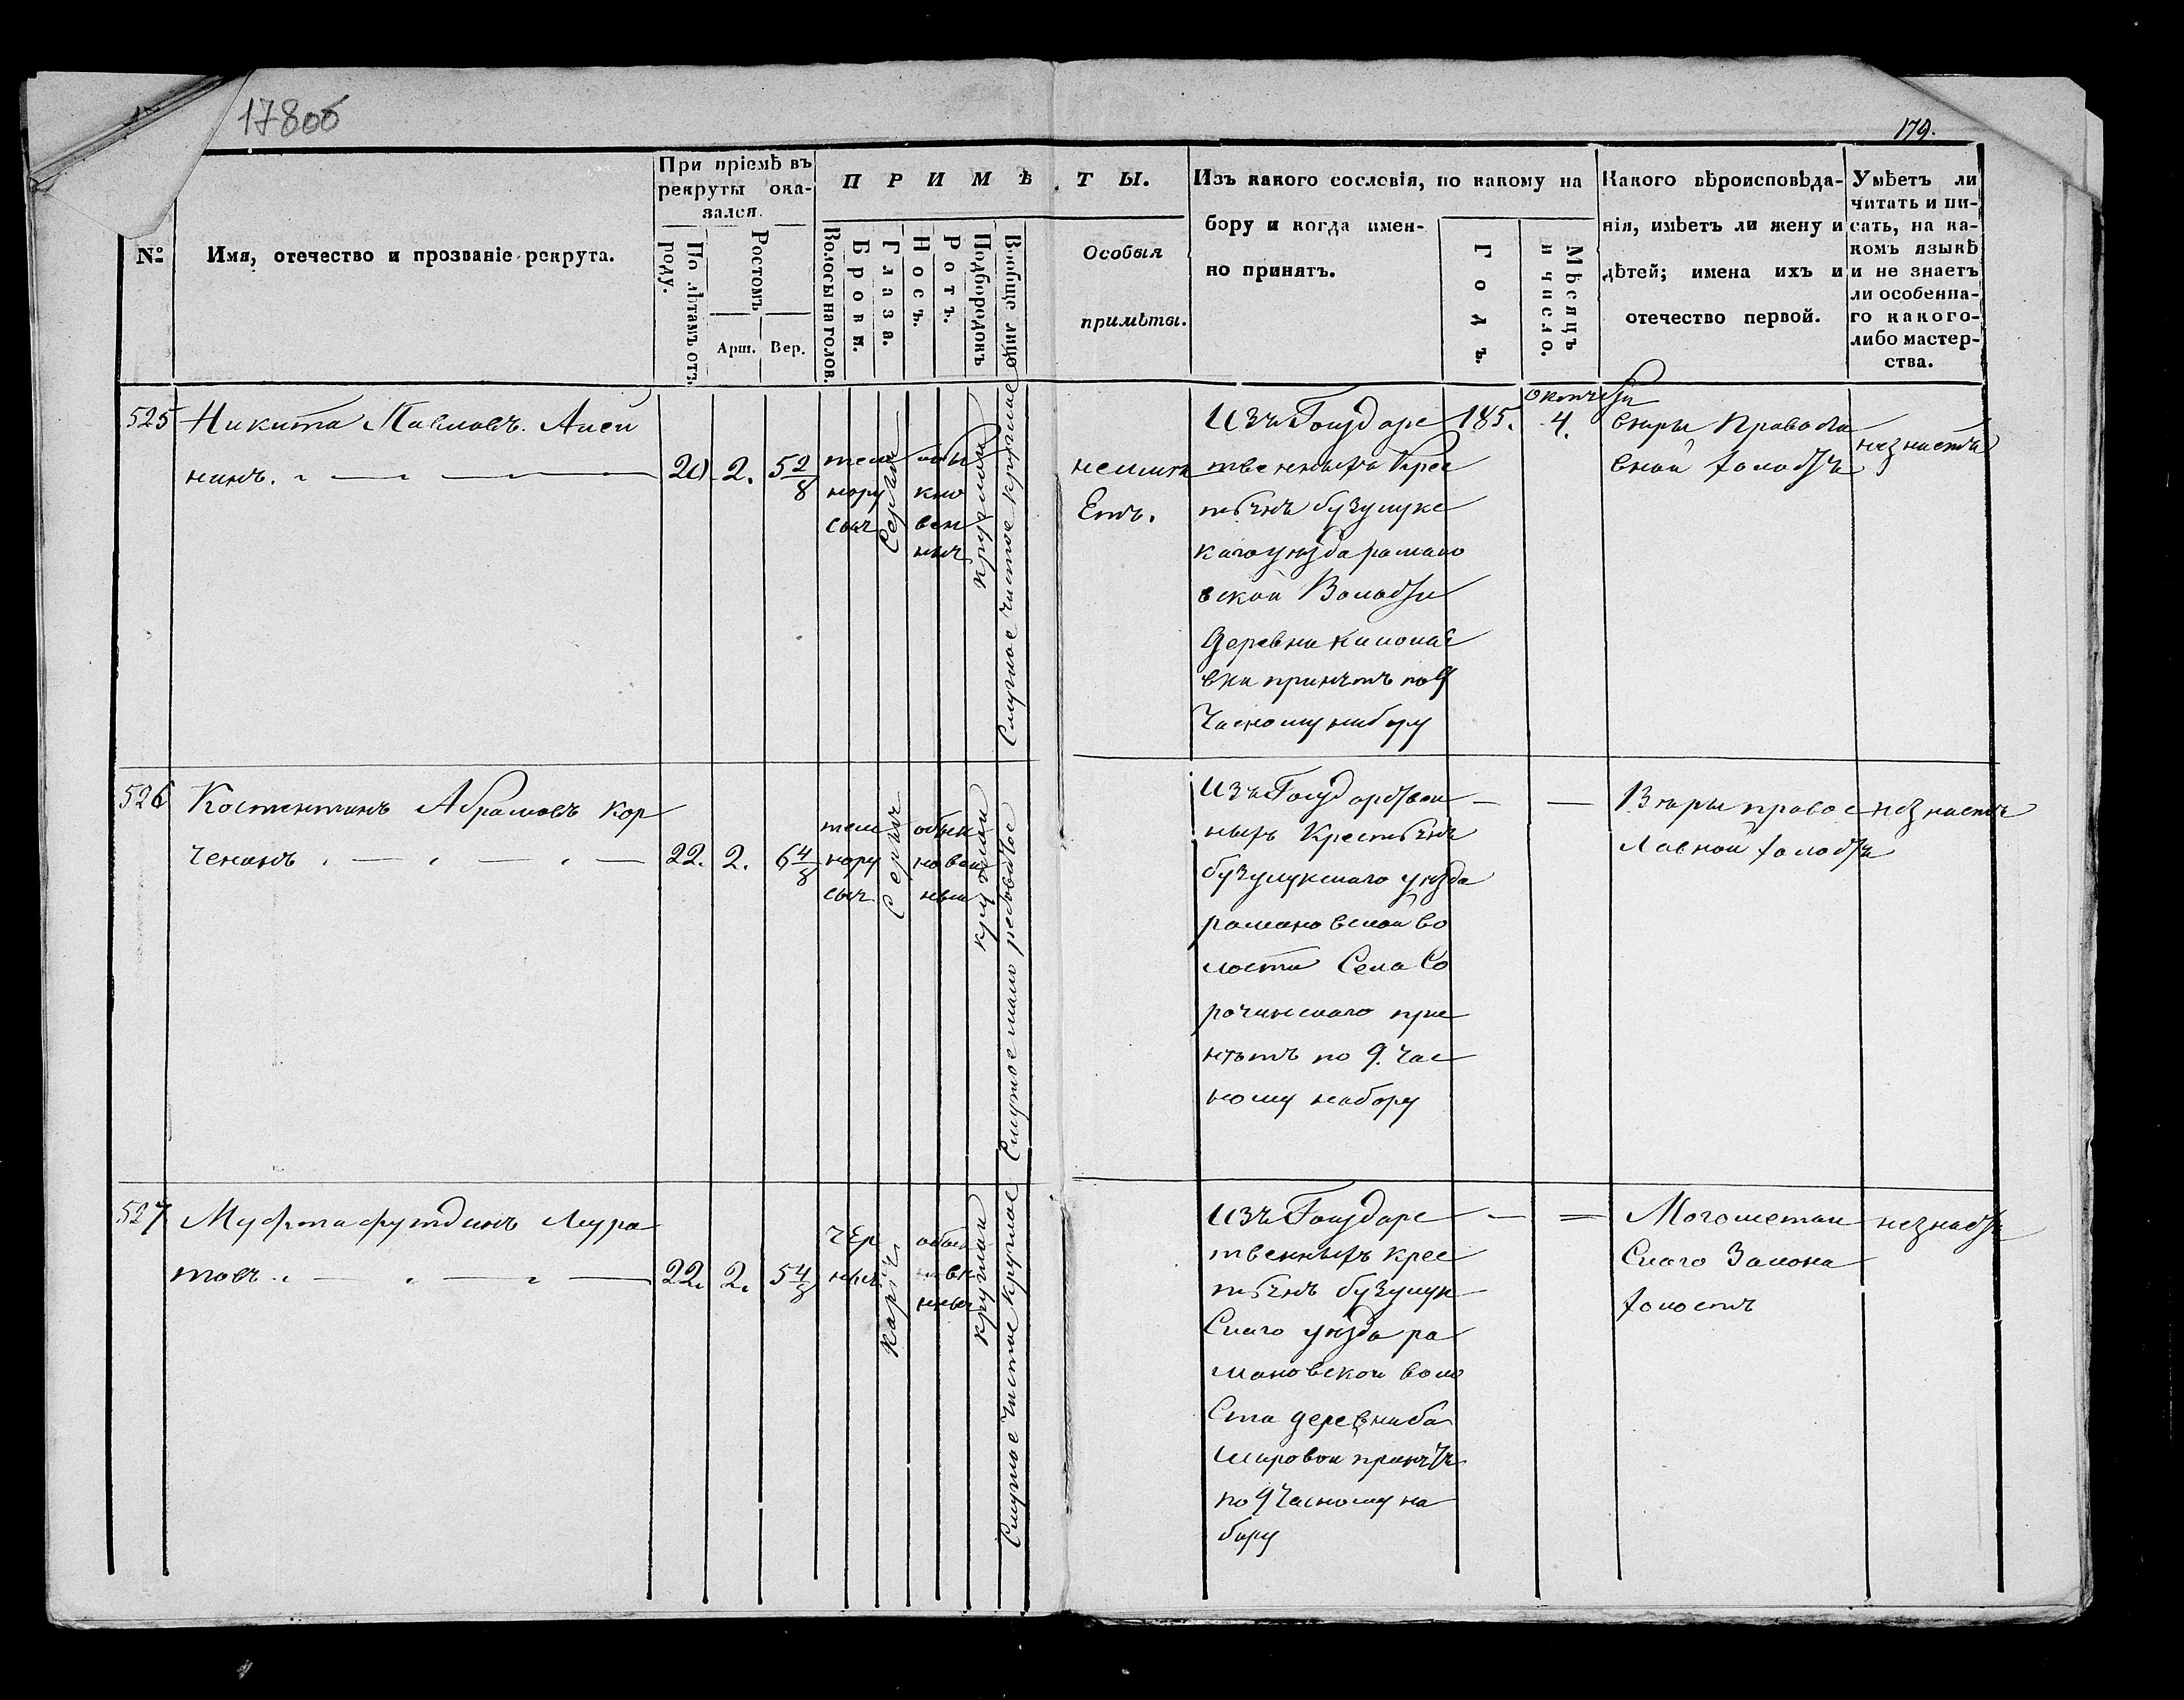 178об
179.
№
Имя, отечество и прозваніе рекрута.
При пріемѣ въ
рекруты ока-
зался.
По лѣтамъ отъ
роду.
Ростомъ
Арш.
Вер.
ПРИМѢТЫ.
Волосы на голов.
Брови.
Глаза.
Носъ.
Ротъ.
Подбородокъ
Вообще лицо
Особыя
примѣты.
Изъ какого сословія, по какому на
бору и когда имен-
но принятъ.
Годъ.
Мѣсяцъ
и число.
Какого вѣроисповѣда-
нія, имѣетъ ли жену и
дѣтей; имена ихъ и
отечество первой.
Умѣетъ ли
читать и пи-
сать, на ка-
комъ языкѣ
и не знаетъ
ли особенна-
го какого-
либо мастер-
ства.
525
Никита Павловъ.
нинъ.
20
2.
5 2/8
темн
нору
сыя
Серыи
обы
кно
вен
ныя
круглыи
Смуглое чистое круглое
Изъ Государс
твенныхъ Крес
тьянъ бузулукс
каго уезда романо
вской Волости
деревни
вки принятъ по 9
Часному набору
185.
октября
4.
веры Правосла
вной холостъ
незнаетъ
526
Костентинъ Абрамовъ Кор
ченинъ
22.
2.
6 4/8
темн
нору
сыя
Серыя
обык
новен
ныи
круглыи
Смуглое мало рябоватое
Изъ Государствен
ныхъ Крестьянъ
бузулукскаго уезда
романовской во
лости Села Со
рочинскаго при
нятъ по 9. час
ному набору
Веры правос
лавной холостъ
незнаетъ
527
Муфтафутдинъ Мура
товъ
22.
2.
5 4/8
чер
ныя
Каріч
обык
новен
ныя
круглыи
Смуглое чистое круглое
Изъ Государс
твенныхъ крес
тьянъ бузулук
Скаго уезда ро
мановской воло
Сти деревни ба
шировой принятъ
по 9 Часному на
бору
Могометан
Скаго Закона
холостъ
незнаетъ